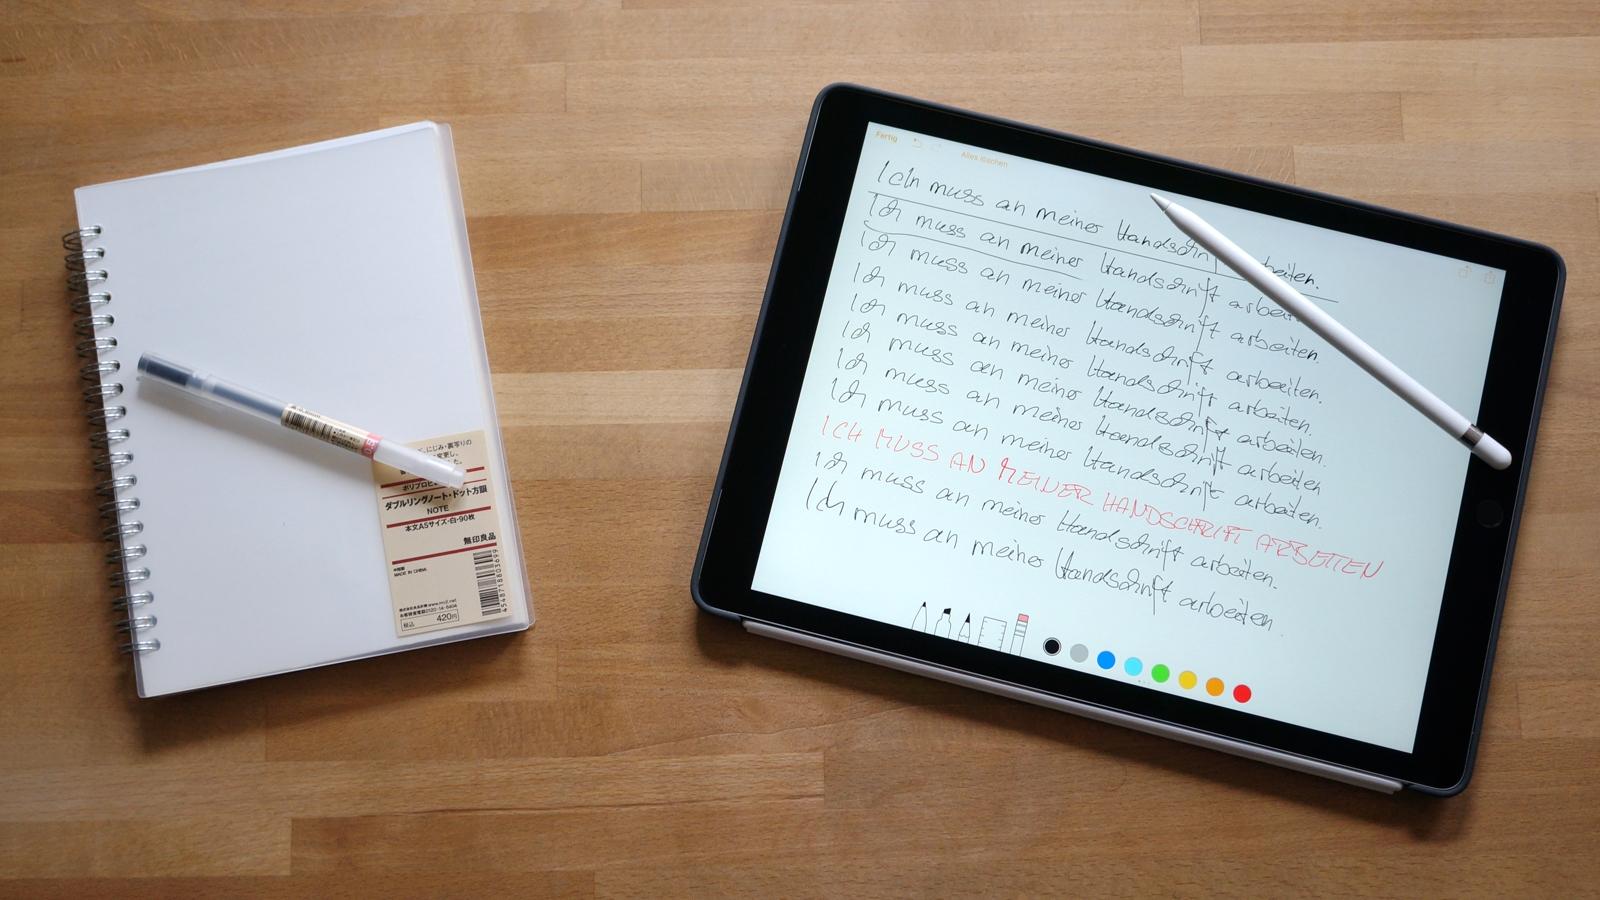 にじみ・裏写りの
変更し、
ポリプロピ
ダブルリングノート・ドット方眼
NOTE
本文A5サイズ・白・90枚
無印良品
中国製
MADE IN CHINA
株式会社良品計画 www.muji.net
お客様室電話0120-14-6404
税込 420円
Fertig Alles löschen
Ich muss an meiner Handsch beiten.
Ich muss an meiner Handschrift arbei
Ich muss an meiner Handschrift arbeiten.
Ich muss an meiner Handschrift arbeiten.
Ich muss an meiner Handschrift arbeiten.
Ich muss an meiner Handschrift arbeiten.
Ich muss an meiner Handschrift arbeiten
Ich muss an meiner Handschrift arbeiten.
ICH MUSS AN MEINER HANDSCHRIFT ARBEITEN
Ich muss an meiner Handschrift arbeiten.
Ich muss an meiner Handschrift arbeiten.